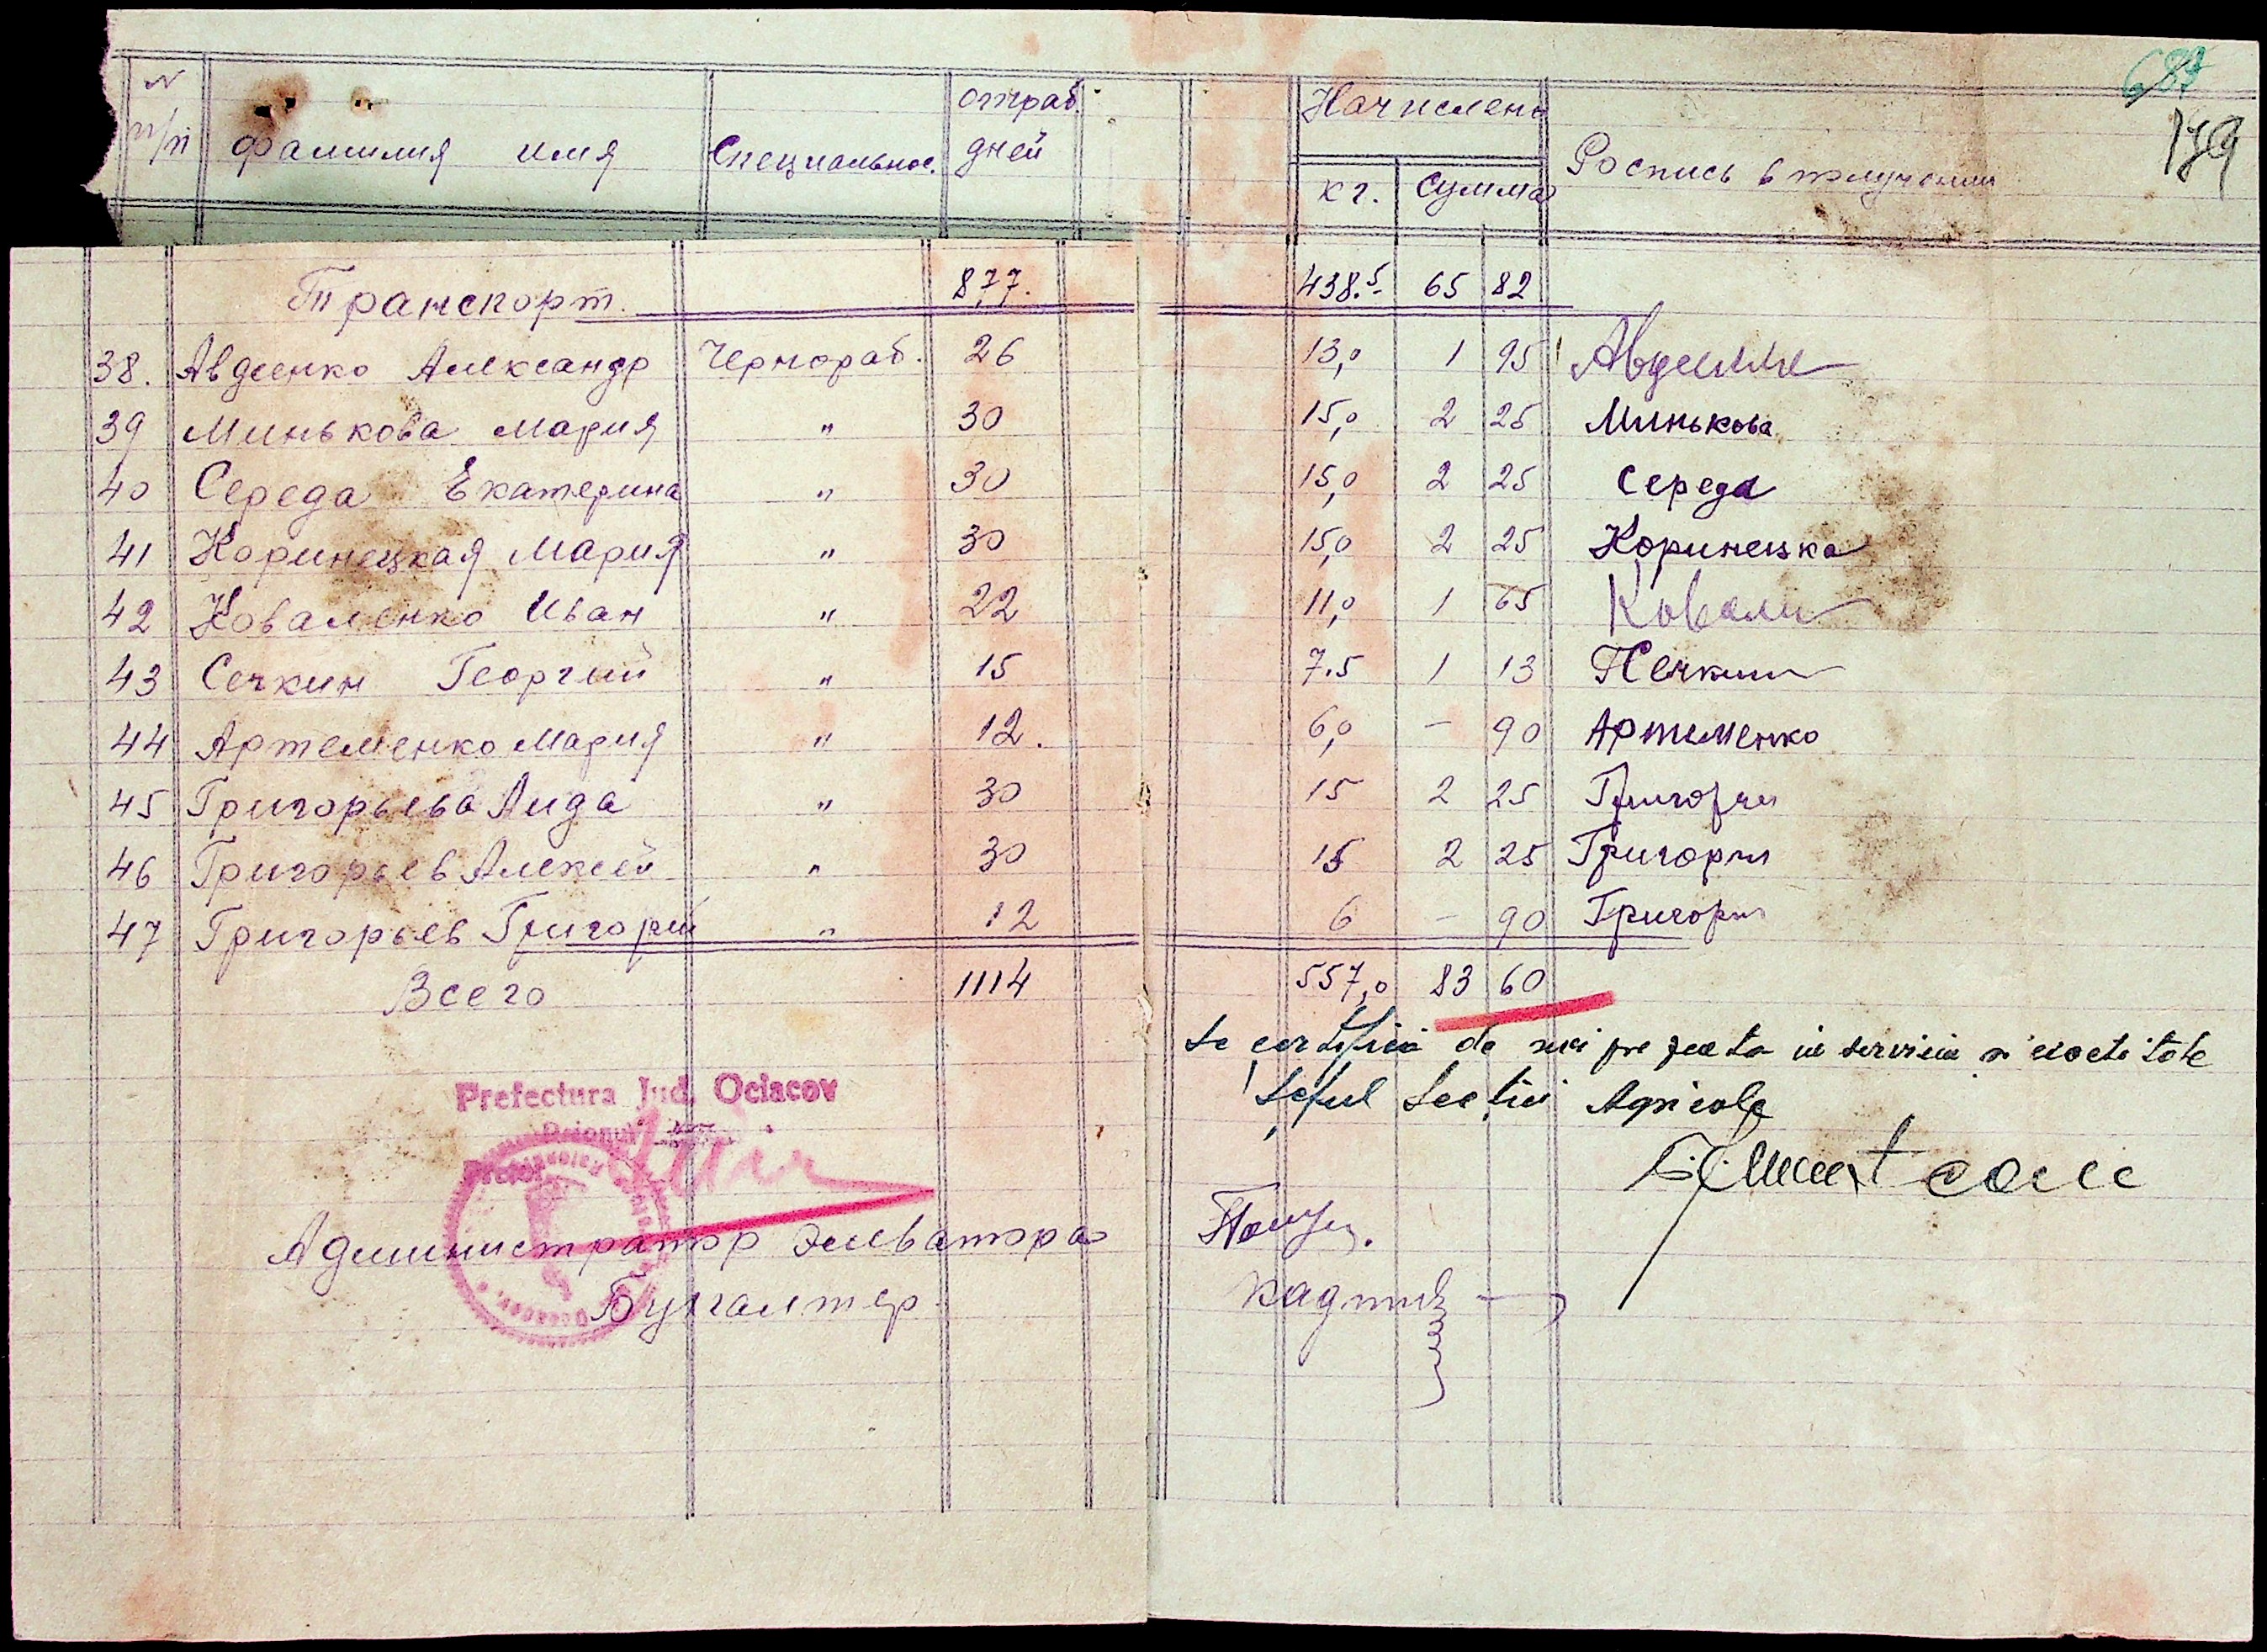 687
179
N п/п Фамилия имя Специальнос. отраб. дней Начислено кг. Сумма Роспись в получении
Транспорт. 877. 438.5 65 82
38. Авдеенко Александр Чернораб. 26 13,0 1 95
39 Минькова Мария " 30 15,0 2 25 Минькова
40 Середа Екатерина " 30 15,0 2 25 Середа
41 Коринецкая Мария " 30 15,0 2 25 Коринецка
42 Коваленко Иван " 22 11,0 1 65 Ковали
43 Сечкин Георгий " 15 7.5 1 13 Сечкин
44 Артеменко Мария " 12. 6,0 – 90 Артеменко
45 Григорьева Лида " 30 15 2 25
46 Григорьев Алексей " 30 15 2 25
47 Григорьев Григорий " 12 6 – 90
Всего 1114 557,0 83 60
Se certifică de noi
Șeful Secției Agricole
Prefectura Jud. Ociacov
Pretor
Администратор Элеватора
Бухгалтер